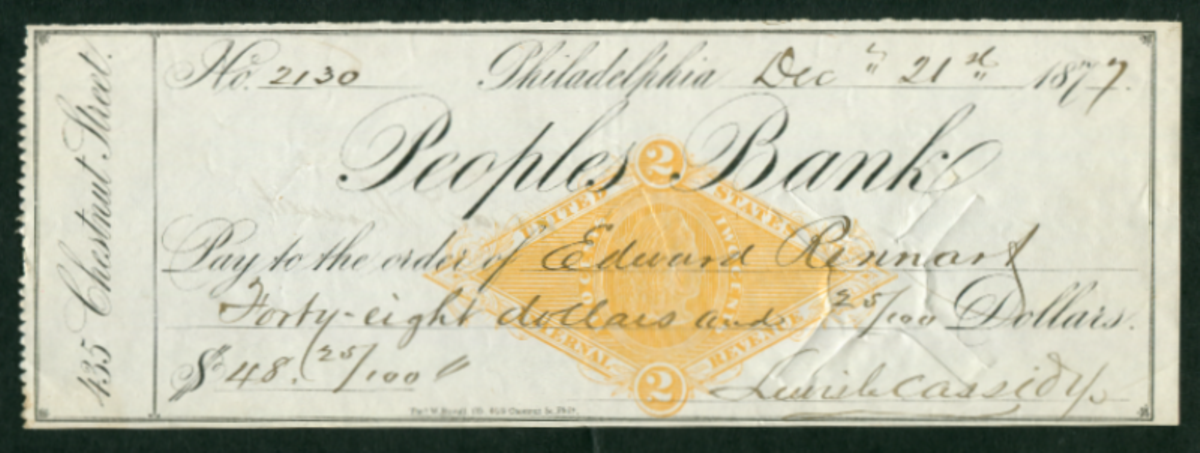 435 Chestnut Street.
No. 2130 Philadelphia Dec " 21st 1877.
Peoples Bank
2
UNITED STATES
Pay to the order of Edward
TWO CENTS
Forty-eight dollars and 25/100 Dollars.
INTERNAL REVENUE
$48. 25/100 "
2
Cassidy